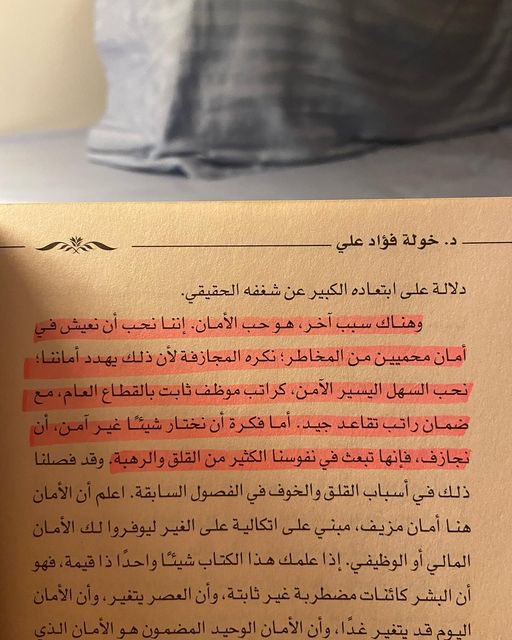 د. خولة فؤاد علي
دلالة على ابتعاده الكبير عن شغفه الحقيقي.
وهناك سبب آخر، هو حب الأمان. إننا نحب أن نعيش في
أمان محميين من المخاطر؛ نكره المجازفة لأن ذلك يهدد أماننا؛
نحب السهل اليسير الآمن، كراتب موظف ثابت بالقطاع العام، مع
ضمان راتب تقاعد جيد. أما فكرة أن نختار شيئًا غير آمن، أن
نجازف، فإنها تبعث في نفوسنا الكثير من القلق والرهبة. وقد فصلنا
ذلك في أسباب القلق والخوف في الفصول السابقة. اعلم أن الأمان
هنا أمان مزيف، مبني على اتكالية على الغير ليوفروا لك الأمان
المالي أو الوظيفي. إذا علمك هذا الكتاب شيئًا واحدًا ذا قيمة، فهو
أن البشر كائنات مضطربة غير ثابتة، وأن العصر يتغير، وأن الأمان
اليوم قد يتغير غدًا، وأن الأمان الوحيد المضمون هو الأمان الذي